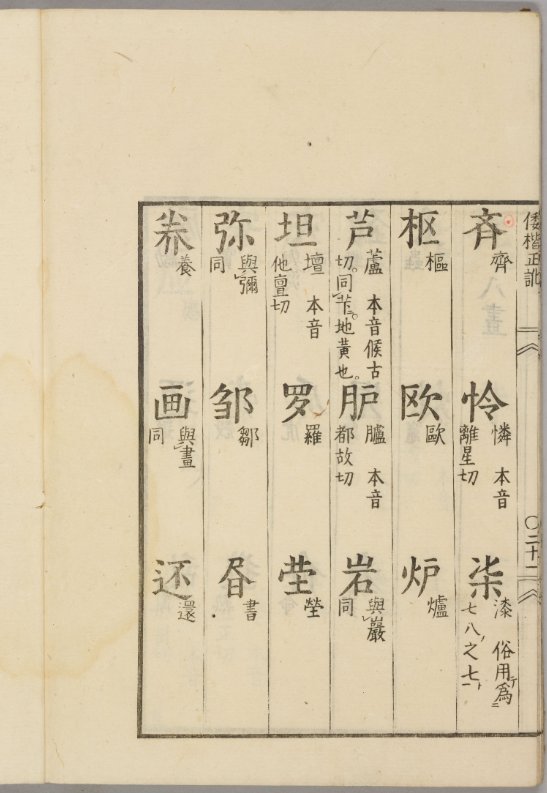 倭楷正訛
〇二十二
斉 齊
怜 憐 本音
離星切
柒 漆 俗用為
七八之七
枢 樞
欧 歐
炉 爐
芦 蘆 本音候古
切。同苄。地黄也。
臚 本音
都故切
岩 與巖
同
坦 壇 本音
他亶切
罗 羅
茔 塋
弥 與彌
同
邹 鄒
書
养 養
画 與畫
同
还 還